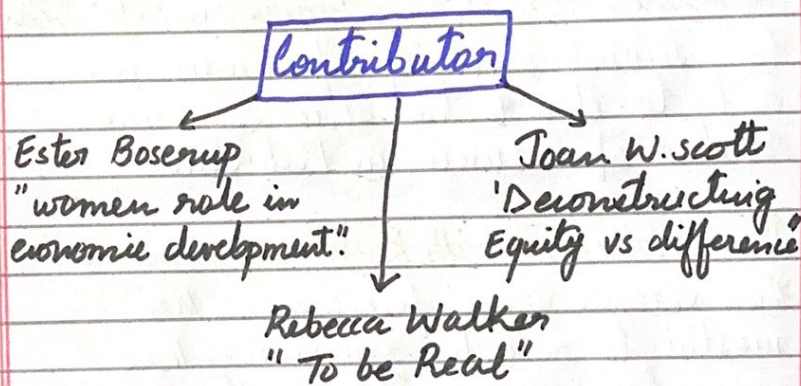 Contributor
Ester Boserup
"women role in
economic development".
Joan W. scott
'Deconstructing
Equity vs difference"
Rebecca Walker
" To be Real"